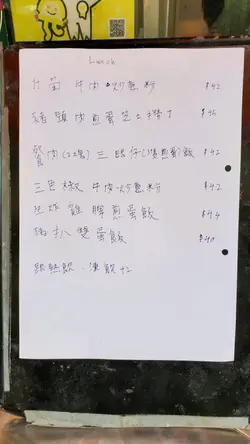 Lunch
竹筍 牛肉 炒意粉 $42
豬頸肉煎蛋芝士撈丁 $45
三餸仔(1隻煎蛋)飯 $42
三色椒 牛肉炒意粉 $42
炸雞髀煎蛋飯 $44
扒雙蛋飯 $40
跟熱飲．凍飲+2